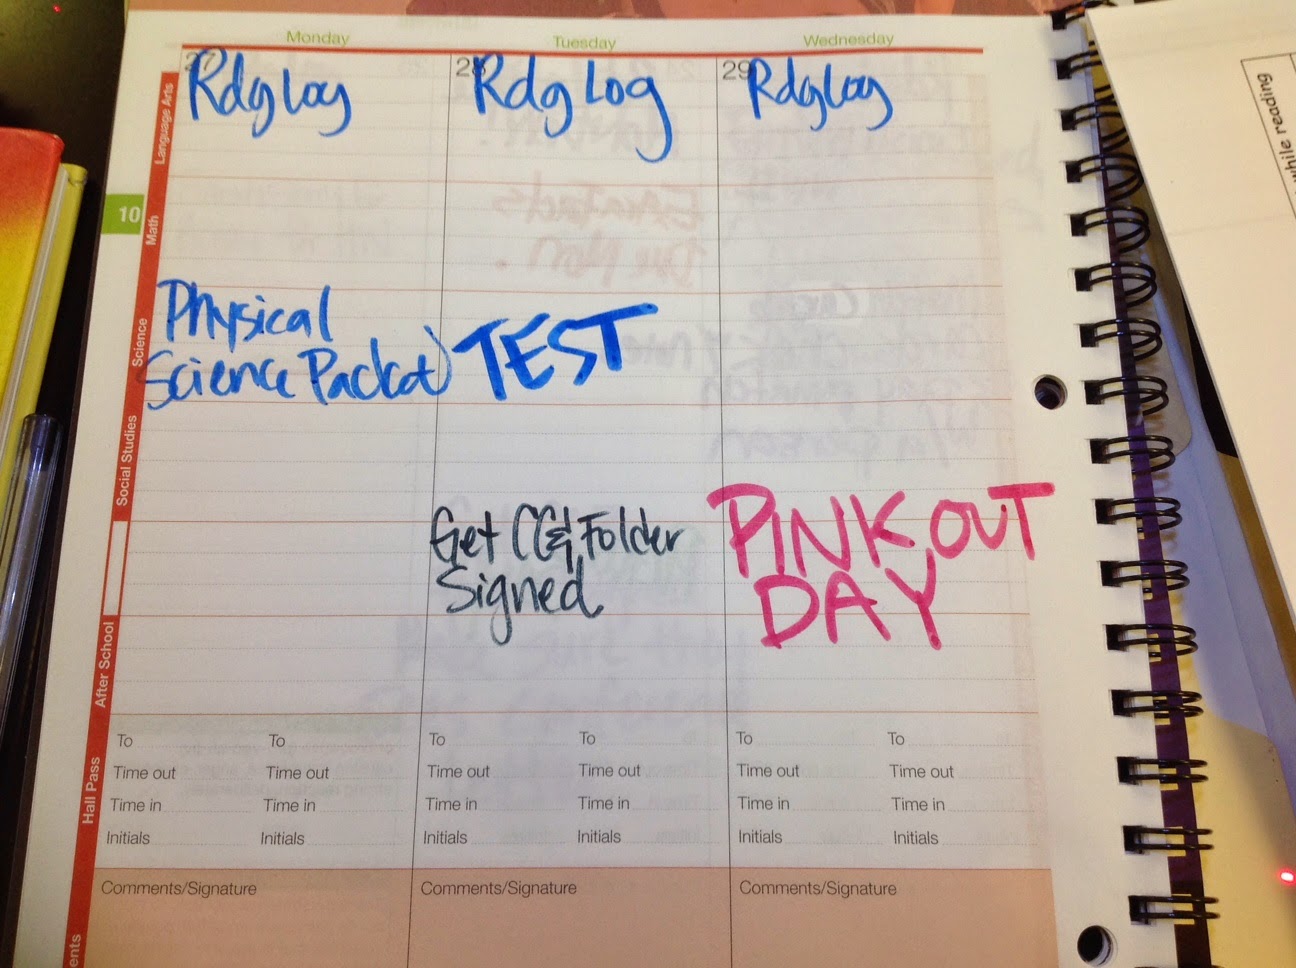 Monday
Tuesday
Wednesday
27
28
29
Language Arts
Rdg Log
Rdg Log
Rdg Log
10
Math
Science
Physical
Science Packet
TEST
Social Studies
Get CG& Folder
Signed
PINK OUT
DAY
After School
Hall Pass
To
To
To
To
To
To
Time out
Time out
Time out
Time out
Time out
Time out
Time in
Time in
Time in
Time in
Time in
Time in
Initials
Initials
Initials
Initials
Initials
Initials
Comments/Signature
Comments/Signature
Comments/Signature
while reading